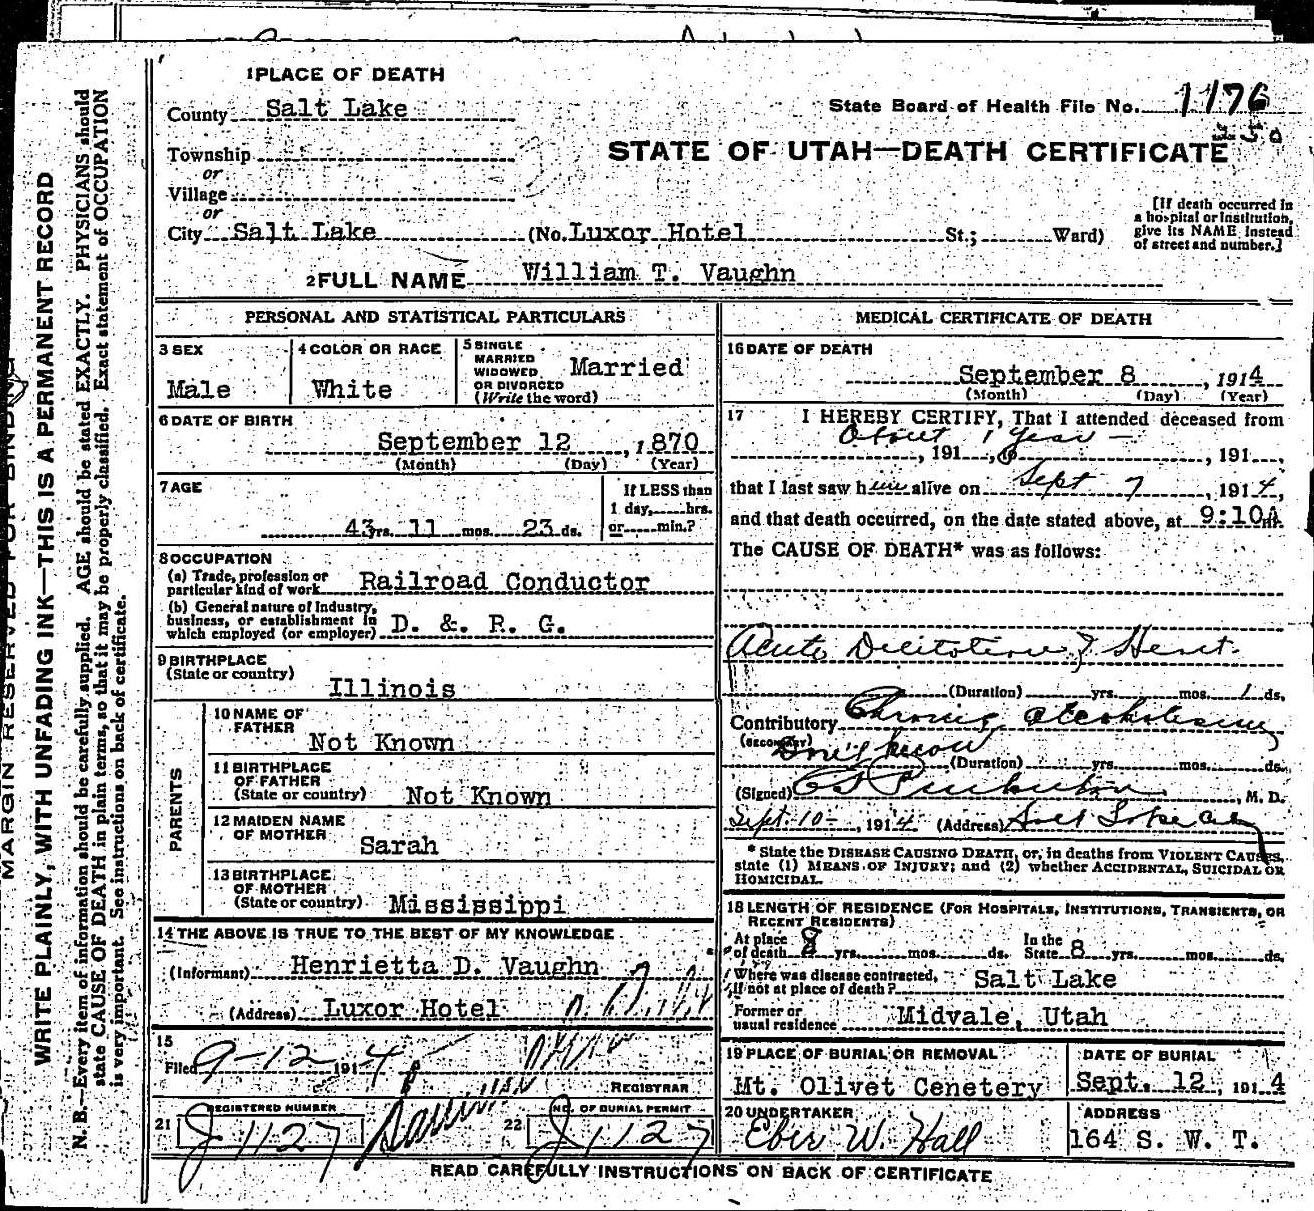 1 PLACE OF DEATH
County Salt Lake
State Board of Health File No. 1176
350
Township
or
Village
or
STATE OF UTAH—DEATH CERTIFICATE
[If death occurred in a hospital or institution, give its NAME instead of street and number.]
City Salt Lake (No. Luxor Hotel St.; Ward)
2 FULL NAME William T. Vaughn
PERSONAL AND STATISTICAL PARTICULARS
3 SEX
Male
4 COLOR OR RACE
White
5 SINGLE
MARRIED
WIDOWED
OR DIVORCED
(Write the word)
Married
6 DATE OF BIRTH
September 12, 1870
(Month) (Day) (Year)
7 AGE
43 yrs. 11 mos. 23 ds.
If LESS than
1 day, hrs.
or min.?
8 OCCUPATION
(a) Trade, profession or
particular kind of work Railroad Conductor
(b) General nature of Industry,
business, or establishment in
which employed (or employer) D. &. R. G.
9 BIRTHPLACE
(State or country)
Illinois
PARENTS
10 NAME OF
FATHER
Not Known
11 BIRTHPLACE
OF FATHER
(State or country) Not Known
12 MAIDEN NAME
OF MOTHER
Sarah
13 BIRTHPLACE
OF MOTHER
(State or country) Mississippi
14 THE ABOVE IS TRUE TO THE BEST OF MY KNOWLEDGE
(Informant) Henrietta D. Vaughn
(Address) Luxor Hotel
15
Filed 9-12 1914
REGISTRAR
21 REGISTERED NUMBER
J 1127
22 NO. OF BURIAL PERMIT
J 1127
MEDICAL CERTIFICATE OF DEATH
16 DATE OF DEATH
September 8, 1914
(Month) (Day) (Year)
17 I HEREBY CERTIFY, That I attended deceased from
About 1 year —
, 191 , , 191 ,
that I last saw him alive on Sept 7, 1914,
and that death occurred, on the date stated above, at 9:10A m.
The CAUSE OF DEATH* was as follows:
Acute Dilitation of Heart.
(Duration) yrs. mos. 1 ds.
Contributory Chronic alcoholism
(SECONDARY) Don't know
(Duration) yrs. mos. ds.
(Signed) , M. D.
Sept. 10-, 1914 (Address) Salt Lake City
* State the DISEASE CAUSING DEATH, or, in deaths from VIOLENT CAUSES,
state (1) MEANS OF INJURY; and (2) whether ACCIDENTAL, SUICIDAL OR
HOMICIDAL.
18 LENGTH OF RESIDENCE (FOR HOSPITALS, INSTITUTIONS, TRANSIENTS, OR
RECENT RESIDENTS)
At place
of death 8 yrs. mos. ds. In the
State 8 yrs. mos. ds.
Where was disease contracted,
If not at place of death? Salt Lake
Former or
usual residence Midvale, Utah
19 PLACE OF BURIAL OR REMOVAL
Mt. Olivet Cenetery
DATE OF BURIAL
Sept. 12, 1914
20 UNDERTAKER
Eber W. Hall
ADDRESS
164 S. W. T.
READ CAREFULLY INSTRUCTIONS ON BACK OF CERTIFICATE
MARGIN RESERVED FOR BINDING
WRITE PLAINLY, WITH UNFADING INK—THIS IS A PERMANENT RECORD
N. B.—Every item of information should be carefully supplied. AGE should be stated EXACTLY. PHYSICIANS should
state CAUSE OF DEATH in plain terms, so that it may be properly classified. Exact statement of OCCUPATION
is very important. See instructions on back of certificate.